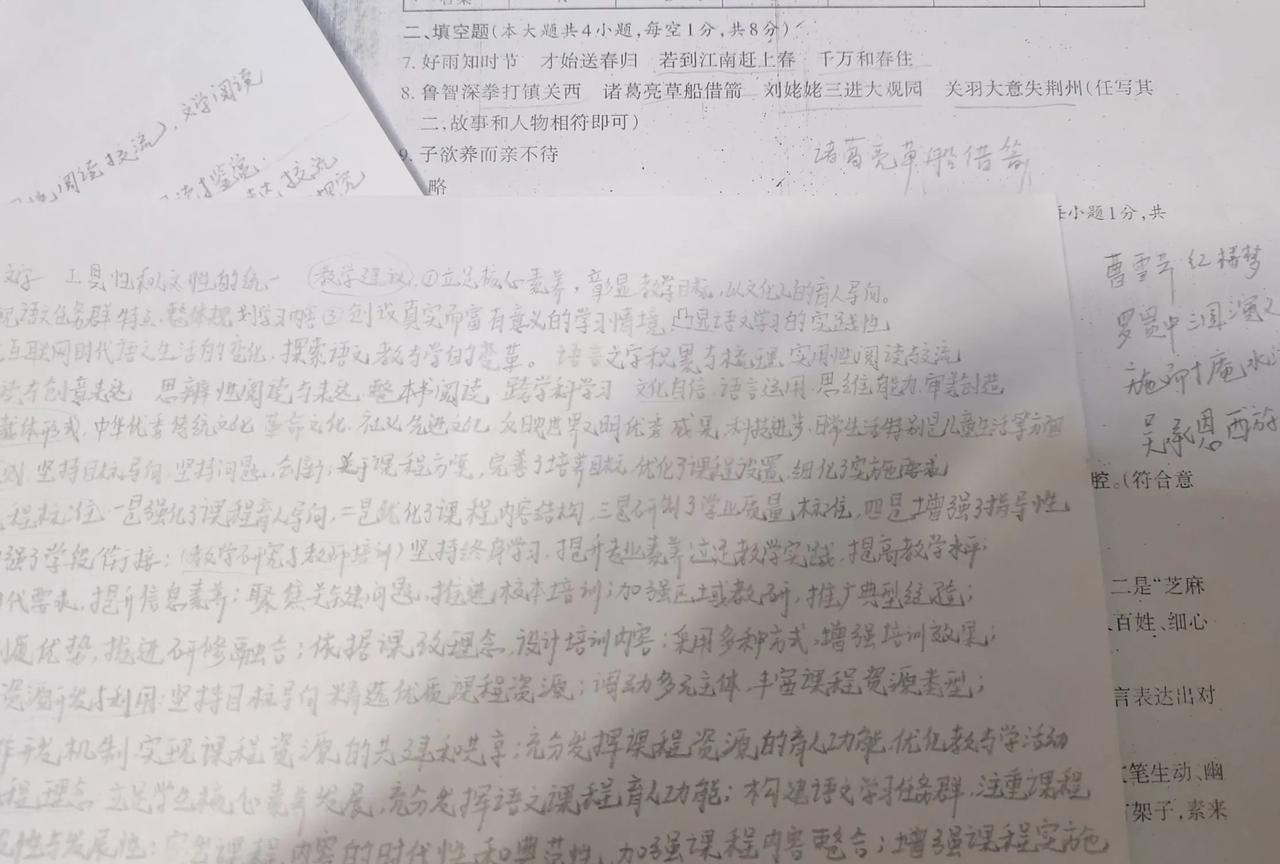 二、填空题(本大题共4小题,每空1分,共8分)
7. 好雨知时节 才始送春归 若到江南赶上春 千万和春住
8. 鲁智深拳打镇关西 诸葛亮草船借箭 刘姥姥三进大观园 关羽大意失荆州(任写其
二,故事和人物相符即可)
9. 子欲养而亲不待
诸葛亮草船借箭
略
阅读交流),文学阅读
小题1分,共
曹雪芹 红楼梦
罗贯中 三国演义
施耐庵 水
吴承恩 西游
腔。(符合意
二是“芝麻
百姓、细心
言表达出对
笔生动、幽
架子,素来
文字 工具性和人文性的统一 (教学建议) ①立足核心素养,彰显教学目标,以文化人的育人导向。
语文任务群特点,整体规划学习内容③创设真实而富有意义的学习情境,凸显语文学习的实践性
互联网时代语文生活的变化,探索语文教与学的变革。 语言文字积累与梳理 实用性阅读与交流
读与创意表达 思辨性阅读与表达 整本书阅读 跨学科学习 文化自信 语言运用 思维能力 审美创造
载体形式,中华优秀传统文化 革命文化,社会先进文化,反映世界文明优秀成果,科技进步,日常生活特别是儿童生活等方面
坚持目标导向,坚持问题,创新;关于课程方案,完善了培养目标,优化了课程设置,细化了实施要求
程标准 一是强化了课程育人导向,二是优化了课程内容结构,三是研制了学业质量标准,四是增强了指导性
强了学段衔接;(教学研究与教师培训)坚持终身学习,提升专业素养 立足教学实践,提高教学水平
代要求,提升信息素养;聚焦关键问题,推进校本培训;加强区域教研,推广典型经验;
优势,推进研修融合;依据课改理念,设计培训内容;采用多种方式,增强培训效果;
资源开发与利用 坚持目标导向 精选优质课程资源;调动多元主体,丰富课程资源类型;
机制 实现课程资源的共建和共享;充分发挥课程资源的育人功能,优化教与学活动
程理念 立足学生核心素养发展,充分发挥语文课程育人功能;构建语文学习任务群,注重课程
性与发展性;突出课程内容的时代性和典范性,加强课程内容整合;增强课程实施